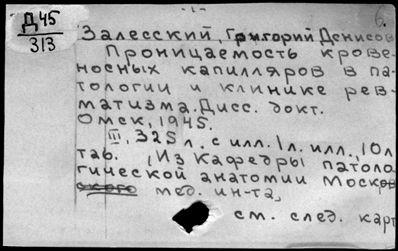 - 1 -
6.
Д45
313
Залесский, Григорий Денисов
Проницаемость крове-
носных капилляров в па-
тологии и клинике рев-
матизма. Дисс. докт.
Омск, 1945.
III, 325 л. с илл. 1 л. илл., 10 л
таб. (Из Кафедры патоло-
гической анатомии Москов
ского мед. ин-та,
см. след. карт